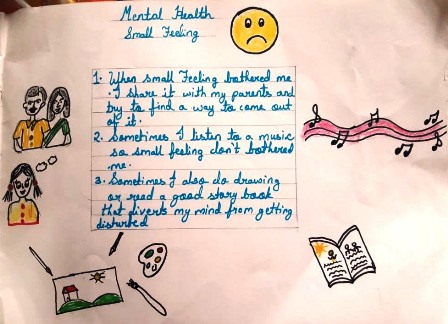 Mental Health
Small Feeling
1. When small Feeling bothered me
. I share it with my parents and
try to find a way to come out
of it.
2. Sometimes I listen to a music
so small feeling don't bothered
me.
3. Sometimes I also do drawing
or read a good story book
that diverts my mind from getting
disturbed